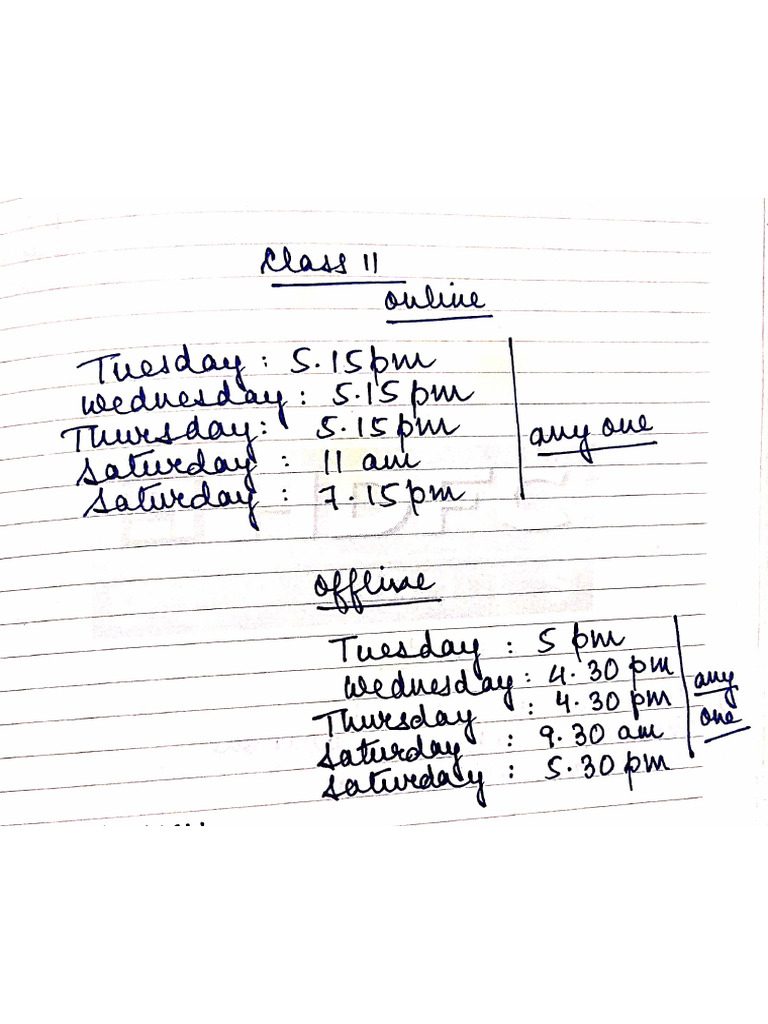 Class 11
online
Tuesday : 5.15pm
Wednesday : 5.15pm
Thursday : 5.15pm
Saturday : 11 am
Saturday : 7.15pm
any one
offline
Tuesday : 5 pm
Wednesday : 4.30 pm
Thursday : 4.30 pm
Saturday : 9.30 am
Saturday : 5.30 pm
any
one